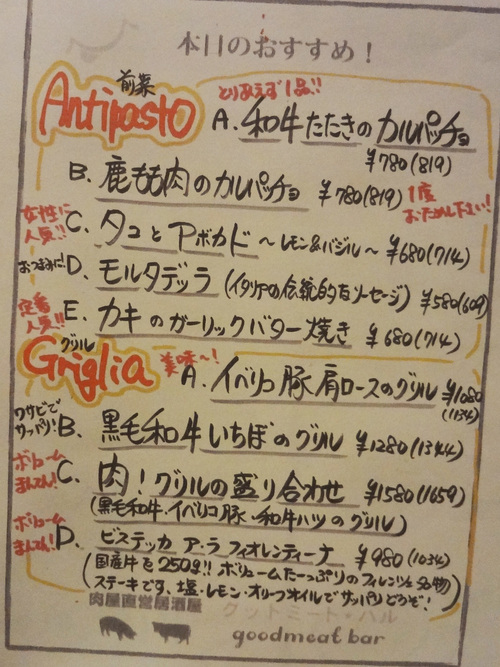 本日のおすすめ！
前菜
Antipasto
とりあえず1品!!
A. 和牛たたきのカルパッチョ
¥780(819)
B. 鹿もも肉のカルパッチョ ¥780(819)
1度おためし下さい!
女性に人気!!
C. タコとアボカド 〜レモン&バジル〜 ¥680(714)
おつまみに!
D. モルタデッラ (イタリアの伝統的なソーセージ) ¥580(609)
定番人気!!
E. カキのガーリックバター焼き ¥680(714)
グリル
Griglia
美味〜!
A. イベリコ豚肩ロースのグリル ¥1080
(1134)
ワサビでサッパリ!
B. 黒毛和牛いちぼのグリル ¥1280(1344)
ボリュームまんてん!
C. 肉！グリルの盛り合わせ ¥1580(1659)
(黒毛和牛・イベリコ豚・和牛ハツのグリル)
ボリュームまんてん!
D. ビステッカ ア・ラ フィオレンティーナ ¥980(1034)
(国産牛を250g!! ボリュームたーっぷりのフィレンツェ名物
ステーキです、塩・レモン・オリーブオイルでサッパリどうぞ!)
肉屋直営居酒屋 グットミート・バル
goodmeat bar